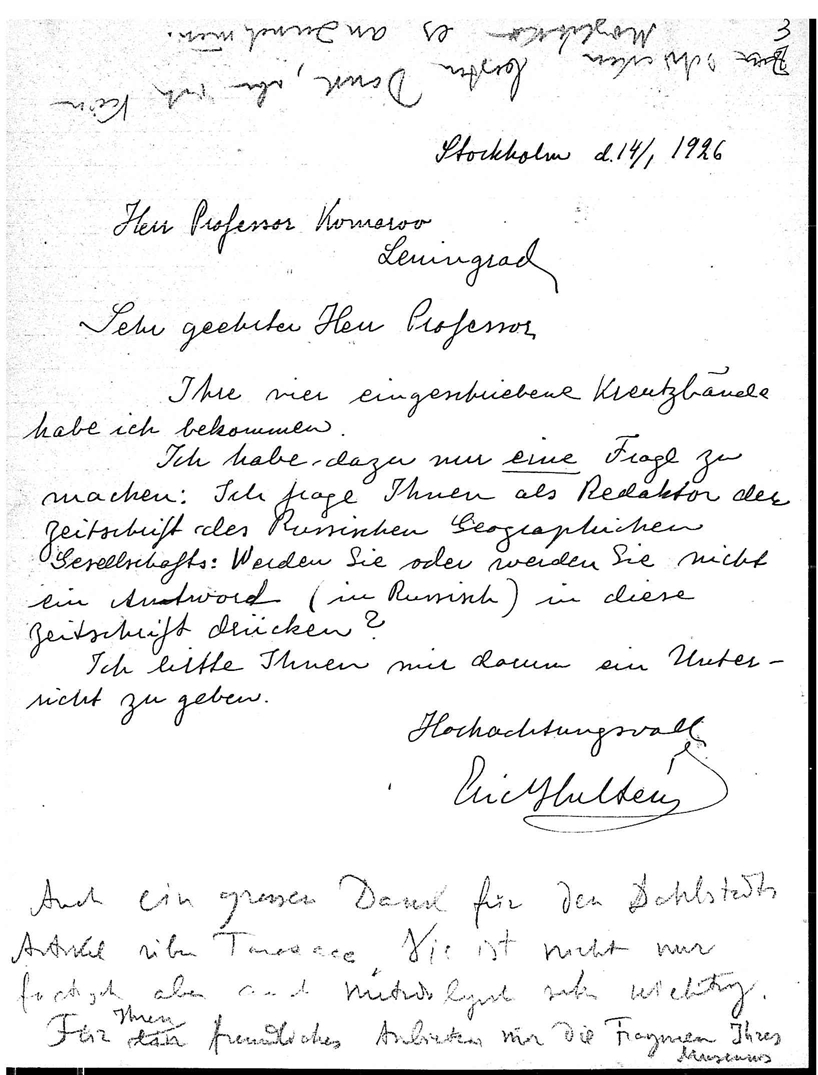 Stockholm d. 14/1 1926
Herr Professor Komarov
Leningrad
Sehr geehrter Herr Professor
Ihre vier eingeschriebene Kreutzbände
habe ich bekommen.
Ich habe dazu nur eine Frage zu
machen: Ich frage Ihnen als Redaktor der
Zeitschrift des Russischen Geographichen
Gesellschafts: Werden Sie oder werden Sie nicht
ein Antword (in Russisch) in diese
Zeitschrift drücken?
Ich bitte Ihnen mir darum ein Unter-
richt zu geben.
Hochachtungsvoll
Eric Hultén
Auch ein grossen Dank für den Dahlstedts
Artikel über Die ist nicht nur
aber auch sehr wichtig.
Für Ihren freundliches Anbieten mir die Fragmen Ihres
Museums
3
schicken, besten Dank, aber ich kein
es anzunehmen.